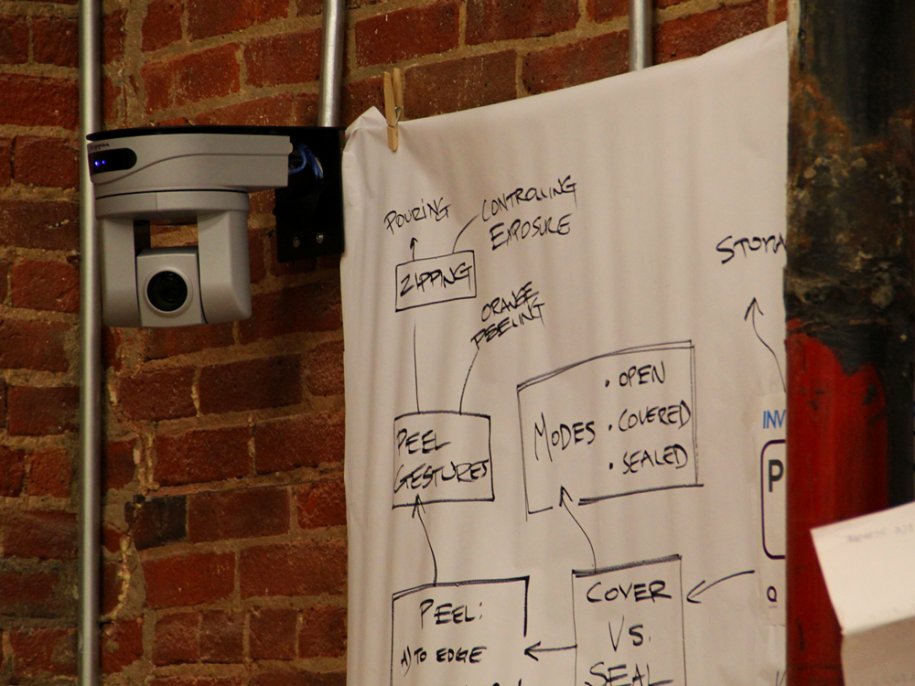 POURING
CONTROLLING
EXPOSURE
ZIPPING
ORANGE
PEELING
PEEL
GESTURES
MODES
• OPEN
• COVERED
• SEALED
PEEL:
A) TO EDGE
COVER
VS.
SEAL
STORA
INV
P